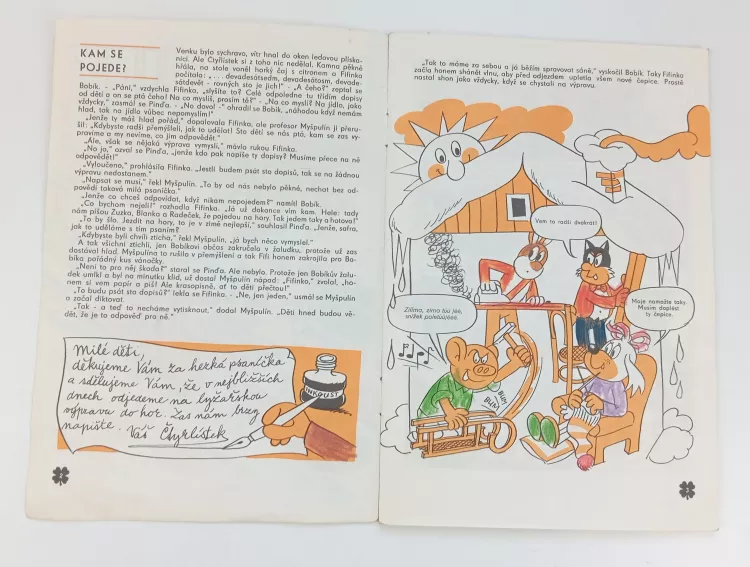 KAM SE
POJEDE?
Venku bylo sychravo, vítr hnal do oken ledovou plíska-
nici. Ale Čtyřlístek si z toho nic nedělal. Kamna pěkně
hřála, na stole voněl horký čaj s citronem a Fifinka
počítala: „ . . . devadesátsedm, devadesátosm, devade-
sátdevět - rovných sto je jich!" - „A čeho?" zeptal se
Bobík. - „Psaní," vzdychla Fifinka, „slyšíte to? Celé odpoledne tu třídím dopisy
od dětí a on se ptá čeho! Na co myslíš, prosím tě?" - „Na co myslí? Na jídlo, jako
vždycky," zasmál se Pinďa. - „No dovol -" ohradil se Bobík, „náhodou když nemám
hlad, tak na jídlo vůbec nepomyslím!"
„Jenže ty máš hlad pořád," dopalovala Fifinka, ale profesor Myšpulín ji přeru-
šil: „Kdybyste radši přemýšleli, jak to udělat! Sto dětí se nás ptá, kam se zas vy-
pravíme a my nevíme, co jim odpovědět."
„Ale, však se nějaká výprava vymyslí," mávla rukou Fifinka.
„No jo," ozval se Pinďa, „jenže kdo pak napíše ty dopisy? Musíme přece na ně
odpovědět!"
„Vyloučeno," prohlásila Fifinka. „Jestli budem psát sto dopisů, tak se na žádnou
výpravu nedostanem."
„Napsat se musí," řekl Myšpulín. „To by od nás nebylo pěkné, nechat bez od-
povědi taková milá psaníčka."
„Jenže co chceš odpovídat, když nikam nepojedem?" namítl Bobík.
„Co bychom nejeli?" rozhodla Fifinka. „Já už dokonce vím kam. Hele: tady
nám píšou Zuzka, Blanka a Radeček, že pojedou na hory. Tak jedem taky a hotovo!"
„To by šlo. Jezdit na hory, to je v zimě nejlepší," souhlasil Pinďa. „Jenže, safra,
jak to uděláme s tím psaním?"
„Kdybyste byli chvíli ticha," řekl Myšpulín, „já bych něco vymyslel."
A tak všichni ztichli, jen Bobíkovi občas zakručelo v žaludku, protože už zas
dostával hlad. Myšpulína to rušilo v přemýšlení a tak Fifi honem zakrojila pro Bo-
bíka pořádný kus vánočky.
„Není to pro něj škoda?" staral se Pinďa. Ale nebylo. Protože jen Bobíkův žalu-
dek umlkl a byl na minutku klid, už dostal Myšpulín nápad: „Fifinko," zvolal, „ho-
nem si vem papír a piš! Ale krasopisně, ať to děti přečtou!"
„To budu psát sto dopisů?" lekla se Fifinka. - „Ne, jen jeden," usmál se Myšpulín
a začal diktovat.
„Tak - a teď to necháme vytisknout," dodal Myšpulín. „Děti hned budou vě-
dět, že je to odpověď pro ně."
Milé děti,
děkujeme Vám za hezká psaníčka
a sdělujeme Vám, že v nejbližších
dnech odjedeme na lyžařskou
výpravu do hor. Zas nám brzy
napište. Váš Čtyrlístek
INKOUST
„Tak to máme za sebou a já běžím spravovat sáně," vyskočil Bobík. Taky Fifinka
začla honem shánět vlnu, aby před odjezdem upletla všem nové čepice. Prostě
nastal shon jako vždycky, když se chystali na výpravu.
Vem to radši dvakrát!
Zliíma, zima tuu jee,
snížek poletuujeee.
Moje namažte taky.
Musím doplést
ty čepice.
BUM
BUM
BUM
3